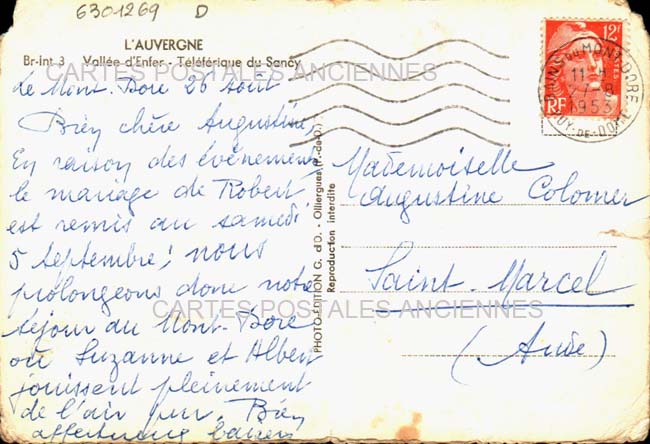 6301269 D
L'AUVERGNE
Br-int 3 Vallée d'Enfer - Téléférique du Sancy
CARTES POSTALES ANCIENNES
Le Mont-Dore 26 Août
Bien chère Augustine,
En raison des événements
le mariage de Robert
est remis au samedi
5 septembre; nous
prolongeons donc notre
séjour au Mont-Dore
où Suzanne et Albert
jouissent pleinement
de l'air pur. Bien
affectueux baisers
PHOTO-ÉDITION G. d'O. - Olliergues (P.-de-D.)
Reproduction interdite
12F
RF
MONT-DORE
11-H
27-8
1953
PUY-DE-DOME
Mademoiselle
Augustine Colomer
Saint-Marcel
(Aude)
CARTES POSTALES ANCIENNES